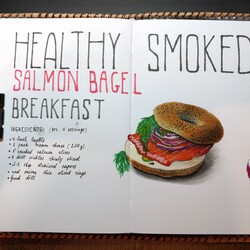 HEALTHY SMOKED
SALMON BAGEL
BREAKFAST
INGREDIENTS: (for 4 servings)
• 4 fresh bagels
• 1 pack cream cheese (250g)
• 8 smoked salmon slices
• 4 dill pickles thinly sliced
• 2-3 tbsp drained capers
• red onions thin sliced rings
• fresh dill